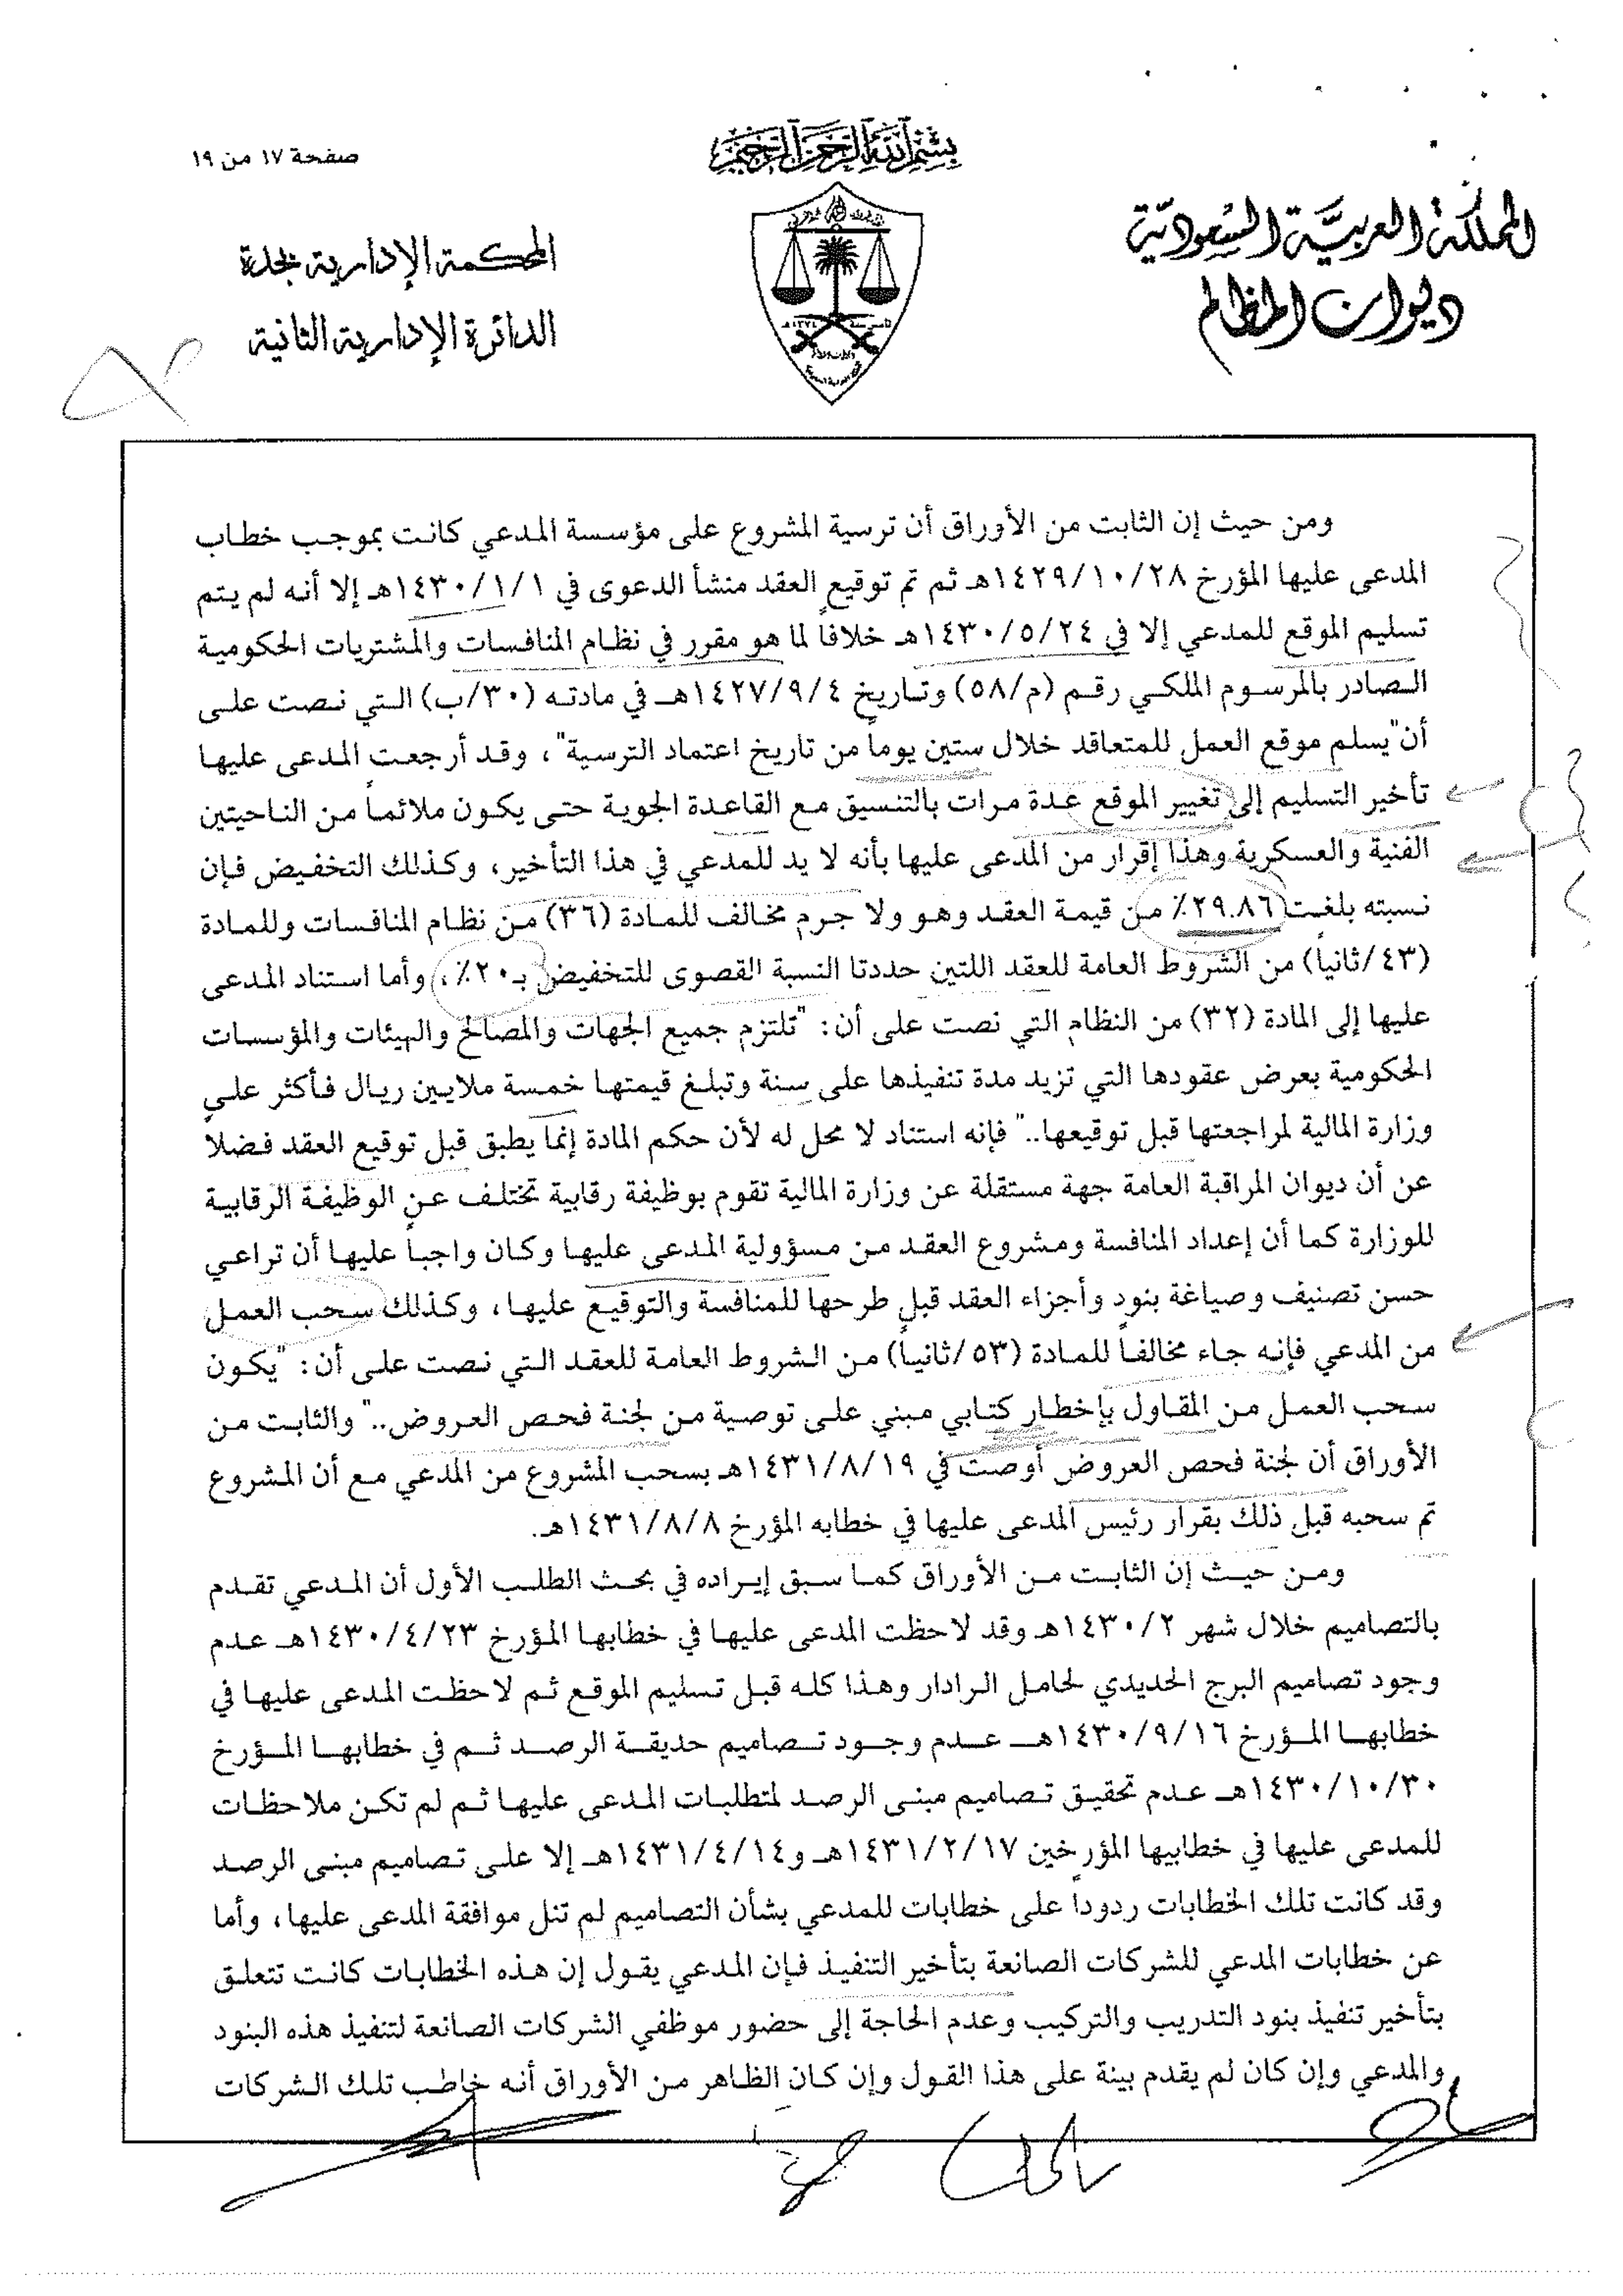 صفحة ١٧ من ١٩
بسم الله الرحمن الرحيم
المملكة العربية السعودية
ديوان المظالم
المحكمة الإدارية بجدة
الدائرة الإدارية الثانية
ومن حيث إن الثابت من الأوراق أن ترسية المشروع على مؤسسة المدعي كانت بموجب خطاب
المدعى عليها المؤرخ ١٤٢٩/١٠/٢٨هـ ثم تم توقيع العقد منشأ الدعوى في ١٤٣٠/١/١هـ إلا أنه لم يتم
تسليم الموقع للمدعي إلا في ١٤٣٠/٥/٢٤هـ خلافاً لما هو مقرر في نظام المنافسات والمشتريات الحكومية
الصادر بالمرسوم الملكي رقم (م/٥٨) وتاريخ ١٤٢٧/٩/٤هـ في مادته (٣٠/ب) التي نصت على
أن"يسلم موقع العمل للمتعاقد خلال ستين يوماً من تاريخ اعتماد الترسية"، وقد أرجعت المدعى عليها
تأخير التسليم إلى تغيير الموقع عدة مرات بالتنسيق مع القاعدة الجوية حتى يكون ملائماً من الناحيتين
الفنية والعسكرية وهذا إقرار من المدعى عليها بأنه لا يد للمدعي في هذا التأخير، وكذلك التخفيض فإن
نسبته بلغت ٢٩.٨٦٪ من قيمة العقد وهو ولا جرم مخالف للمادة (٣٦) من نظام المنافسات وللمادة
(٤٣/ثانياً) من الشروط العامة للعقد اللتين حددتا النسبة القصوى للتخفيض بـ٢٠٪، وأما استناد المدعى
عليها إلى المادة (٣٢) من النظام التي نصت على أن: "تلتزم جميع الجهات والمصالح والهيئات والمؤسسات
الحكومية بعرض عقودها التي تزيد مدة تنفيذها على سنة وتبلغ قيمتها خمسة ملايين ريال فأكثر على
وزارة المالية لمراجعتها قبل توقيعها.." فإنه استناد لا محل له لأن حكم المادة إنما يطبق قبل توقيع العقد فضلاً
عن أن ديوان المراقبة العامة جهة مستقلة عن وزارة المالية تقوم بوظيفة رقابية تختلف عن الوظيفة الرقابية
للوزارة كما أن إعداد المنافسة ومشروع العقد من مسؤولية المدعى عليها وكان واجباً عليها أن تراعي
حسن تصنيف وصياغة بنود وأجزاء العقد قبل طرحها للمنافسة والتوقيع عليها، وكذلك سحب العمل
من المدعي فإنه جاء مخالفاً للمادة (٥٣/ثانياً) من الشروط العامة للعقد التي نصت على أن: "يكون
سحب العمل من المقاول بإخطار كتابي مبني على توصية من لجنة فحص العروض.." والثابت من
الأوراق أن لجنة فحص العروض أوصت في ١٤٣١/٨/١٩هـ بسحب المشروع من المدعي مع أن المشروع
تم سحبه قبل ذلك بقرار رئيس المدعى عليها في خطابه المؤرخ ١٤٣١/٨/٨هـ.
ومن حيث إن الثابت من الأوراق كما سبق إيراده في بحث الطلب الأول أن المدعي تقدم
بالتصاميم خلال شهر ١٤٣٠/٢هـ وقد لاحظت المدعى عليها في خطابها المؤرخ ١٤٣٠/٤/٢٣هـ عدم
وجود تصاميم البرج الحديدي لحامل الرادار وهذا كله قبل تسليم الموقع ثم لاحظت المدعى عليها في
خطابها المؤرخ ١٤٣٠/٩/١٦هـ عدم وجود تصاميم حديقة الرصد ثم في خطابها المؤرخ
١٤٣٠/١٠/٣٠هـ عدم تحقيق تصاميم مبنى الرصد لمتطلبات المدعى عليها ثم لم تكن ملاحظات
للمدعى عليها في خطابيها المؤرخين ١٤٣١/٢/١٧هـ و١٤٣١/٤/١٤هـ إلا على تصاميم مبنى الرصد
وقد كانت تلك الخطابات ردوداً على خطابات للمدعي بشأن التصاميم لم تنل موافقة المدعى عليها، وأما
عن خطابات المدعي للشركات الصانعة بتأخير التنفيذ فإن المدعي يقول إن هذه الخطابات كانت تتعلق
بتأخير تنفيذ بنود التدريب والتركيب وعدم الحاجة إلى حضور موظفي الشركات الصانعة لتنفيذ هذه البنود
والمدعي وإن كان لم يقدم بينة على هذا القول وإن كان الظاهر من الأوراق أنه خاطب تلك الشركات